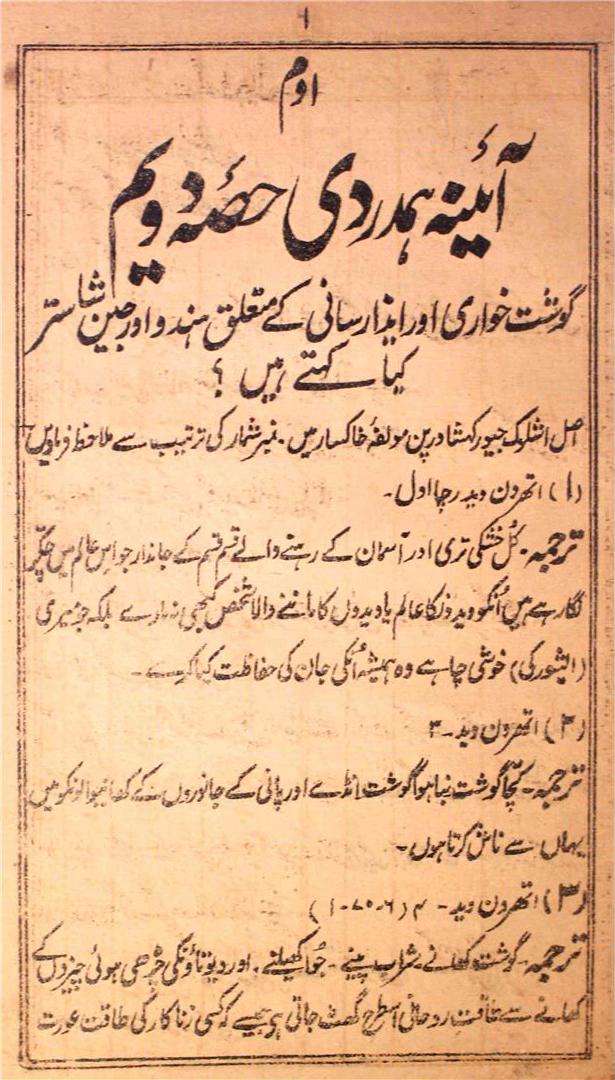 ۱
اوم
آئینہ ہمدردی حصۂ دویم
گوشت خواری اور ایذا رسانی کے متعلق ہندو اور جین شاستر
کیا کہتے ہیں ؟
اصل اشلوک جیو رکہشا درپن مولفۂ خاکسار میں۔ نمبر شمار کی ترتیب سے ملاحظہ فرماویں
(۱) اتھرون وید رچا اول۔
ترجمہ۔ کُل خشکی تری اور آسمان کے رہنے والے قسم قسم کے جاندار جو اس عالم میں چکّر
لگا رہے ہیں اُنکو ویدونکا عالم یا ویدوں کا ماننے والا شخص کبھی نہ مارے بلکہ جو میری
(ایشور کی) خوشی چاہے وہ ہمیشہ اُنکی جان کی حفاظت کیا کرے۔
(۲) اتھرون وید۔ ۳
ترجمہ۔ کچّا گوشت بنا ہوا گوشت انڈے اور پانی کے جانوروں کے کھانیوالونکو میں
یہاں سے ناش کرتا ہوں۔
(۳) اتھرون وید۔ ۴ (۶-۷۰-۱)
ترجمہ۔ گوشت کھانے۔ شراب پینے۔ جُوا کھیلنے۔ اور دیوتاؤنکی چڑھی ہوئی چیزوں کے
کھانے سے طاقت روحانی اسطرح گھٹ جاتی ہے جیسے کہ کسی زناکار کی طاقت عورت